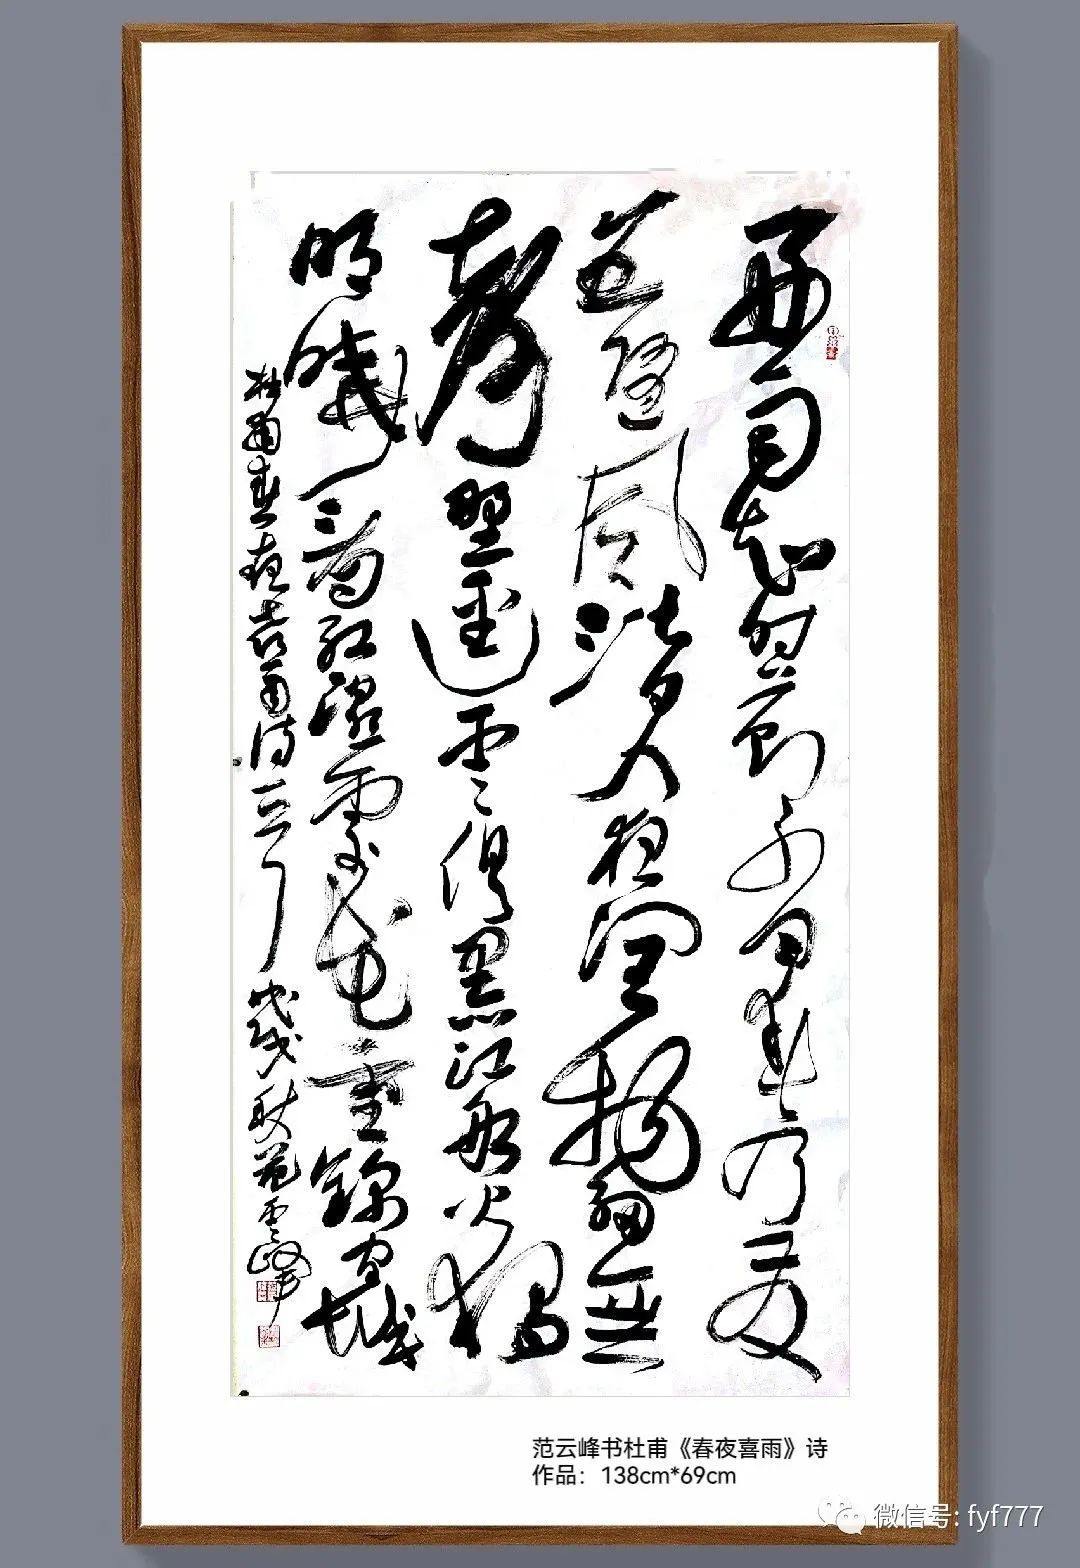 好雨知时節当春乃發
生随風潜入夜潤物細無
聲野逕雲俱黑江船火獨
明曉看紅濕處花重錦官城
杜甫春夜喜雨诗一首 戊戌秋范雲峰
范云峰书杜甫《春夜喜雨》诗
作品：138cm*69cm
微信号: fyf777